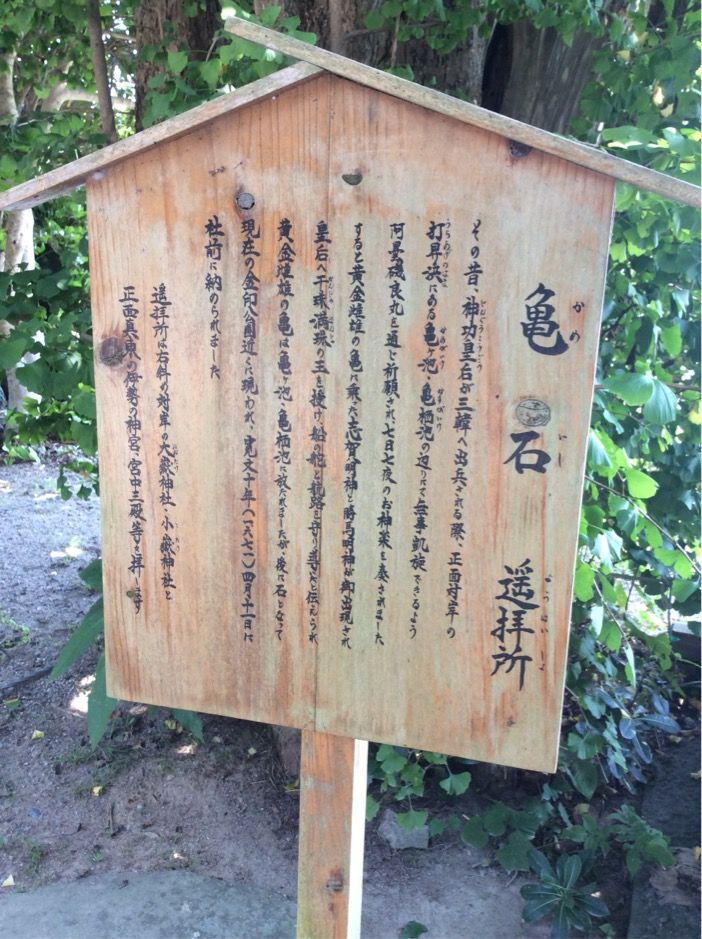 亀石 遥拝所
その昔、神功皇后が三韓へ出兵される際、正面対岸の
打昇浜にある亀ヶ池・亀栖池の辺りにて無事凱旋できるよう
阿曇磯良丸を通じ祈願され、七日七夜のお神楽を奏されました
すると黄金雌雄の亀に乗た志賀明神と勝馬明神が御出現され
皇后へ干珠満珠の玉を授け、船の舵と航路を守り導いたと伝えられ
黄金雌雄の亀は亀ヶ池・亀栖池に放たれましたが、後に石となって
現在の金印公園近くに現われ、寛文十年(一六七一)四月十一日に
社前に納められました
遥拝所は右斜の対岸の大嶽神社・小嶽神社と
正面真東の伊勢の神宮、宮中三殿等を拝します